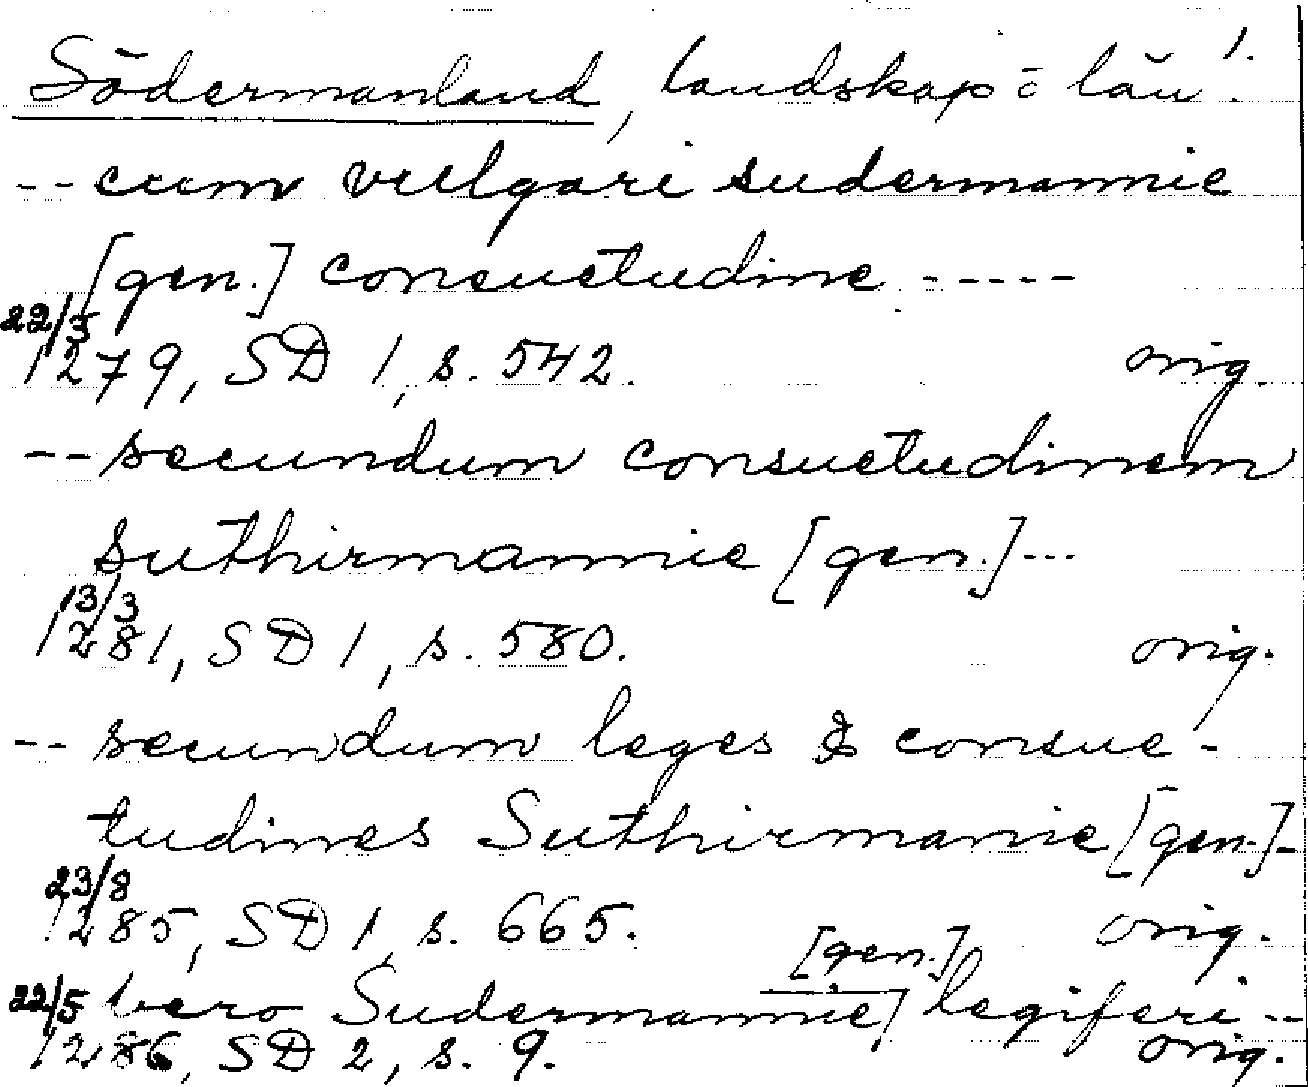 Södermanland, landskap = län 1.
-- cum vulgari sudermannie
[gen.] consuetudine -----
22/3
1279, SD 1, s. 542. orig.
-- secundum consuetudinem
suthirmannie [gen.] ---
13/3
1281, SD 1, s. 580. orig.
-- secundum leges & consue-
tudines Suthirmanie [gen.] -
23/8
1285, SD 1, s. 665. orig.
[gen.]
22/5 vero Sudermannie legiferi --
1286, SD 2, s. 9. orig.